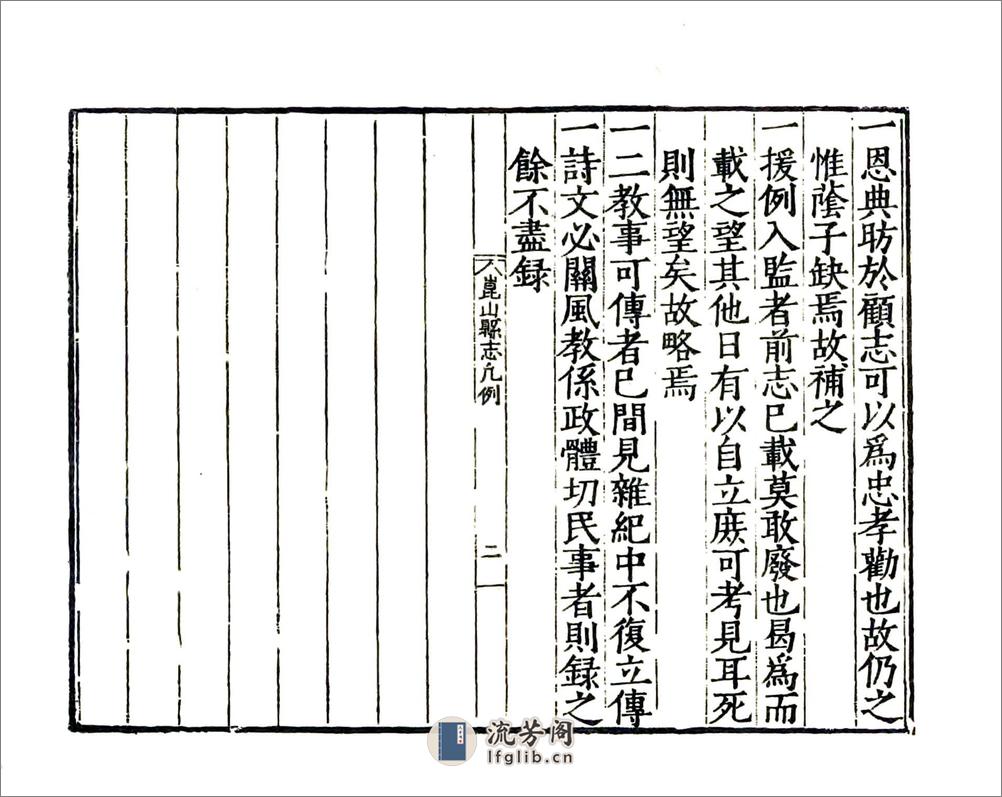 一恩典昉於顧志可以爲忠孝勸也故仍之
惟蔭子缺焉故補之
一援例入監者前志已載莫敢廢也曷爲而
載之望其他日有以自立庶可考見耳死
則無望矣故略焉
一二教事可傳者已間見雜紀中不復立傳
一詩文必關風教係政體切民事者則録之
餘不盡録
崑山縣志凡例
二
流芳阁
lfglib.cn